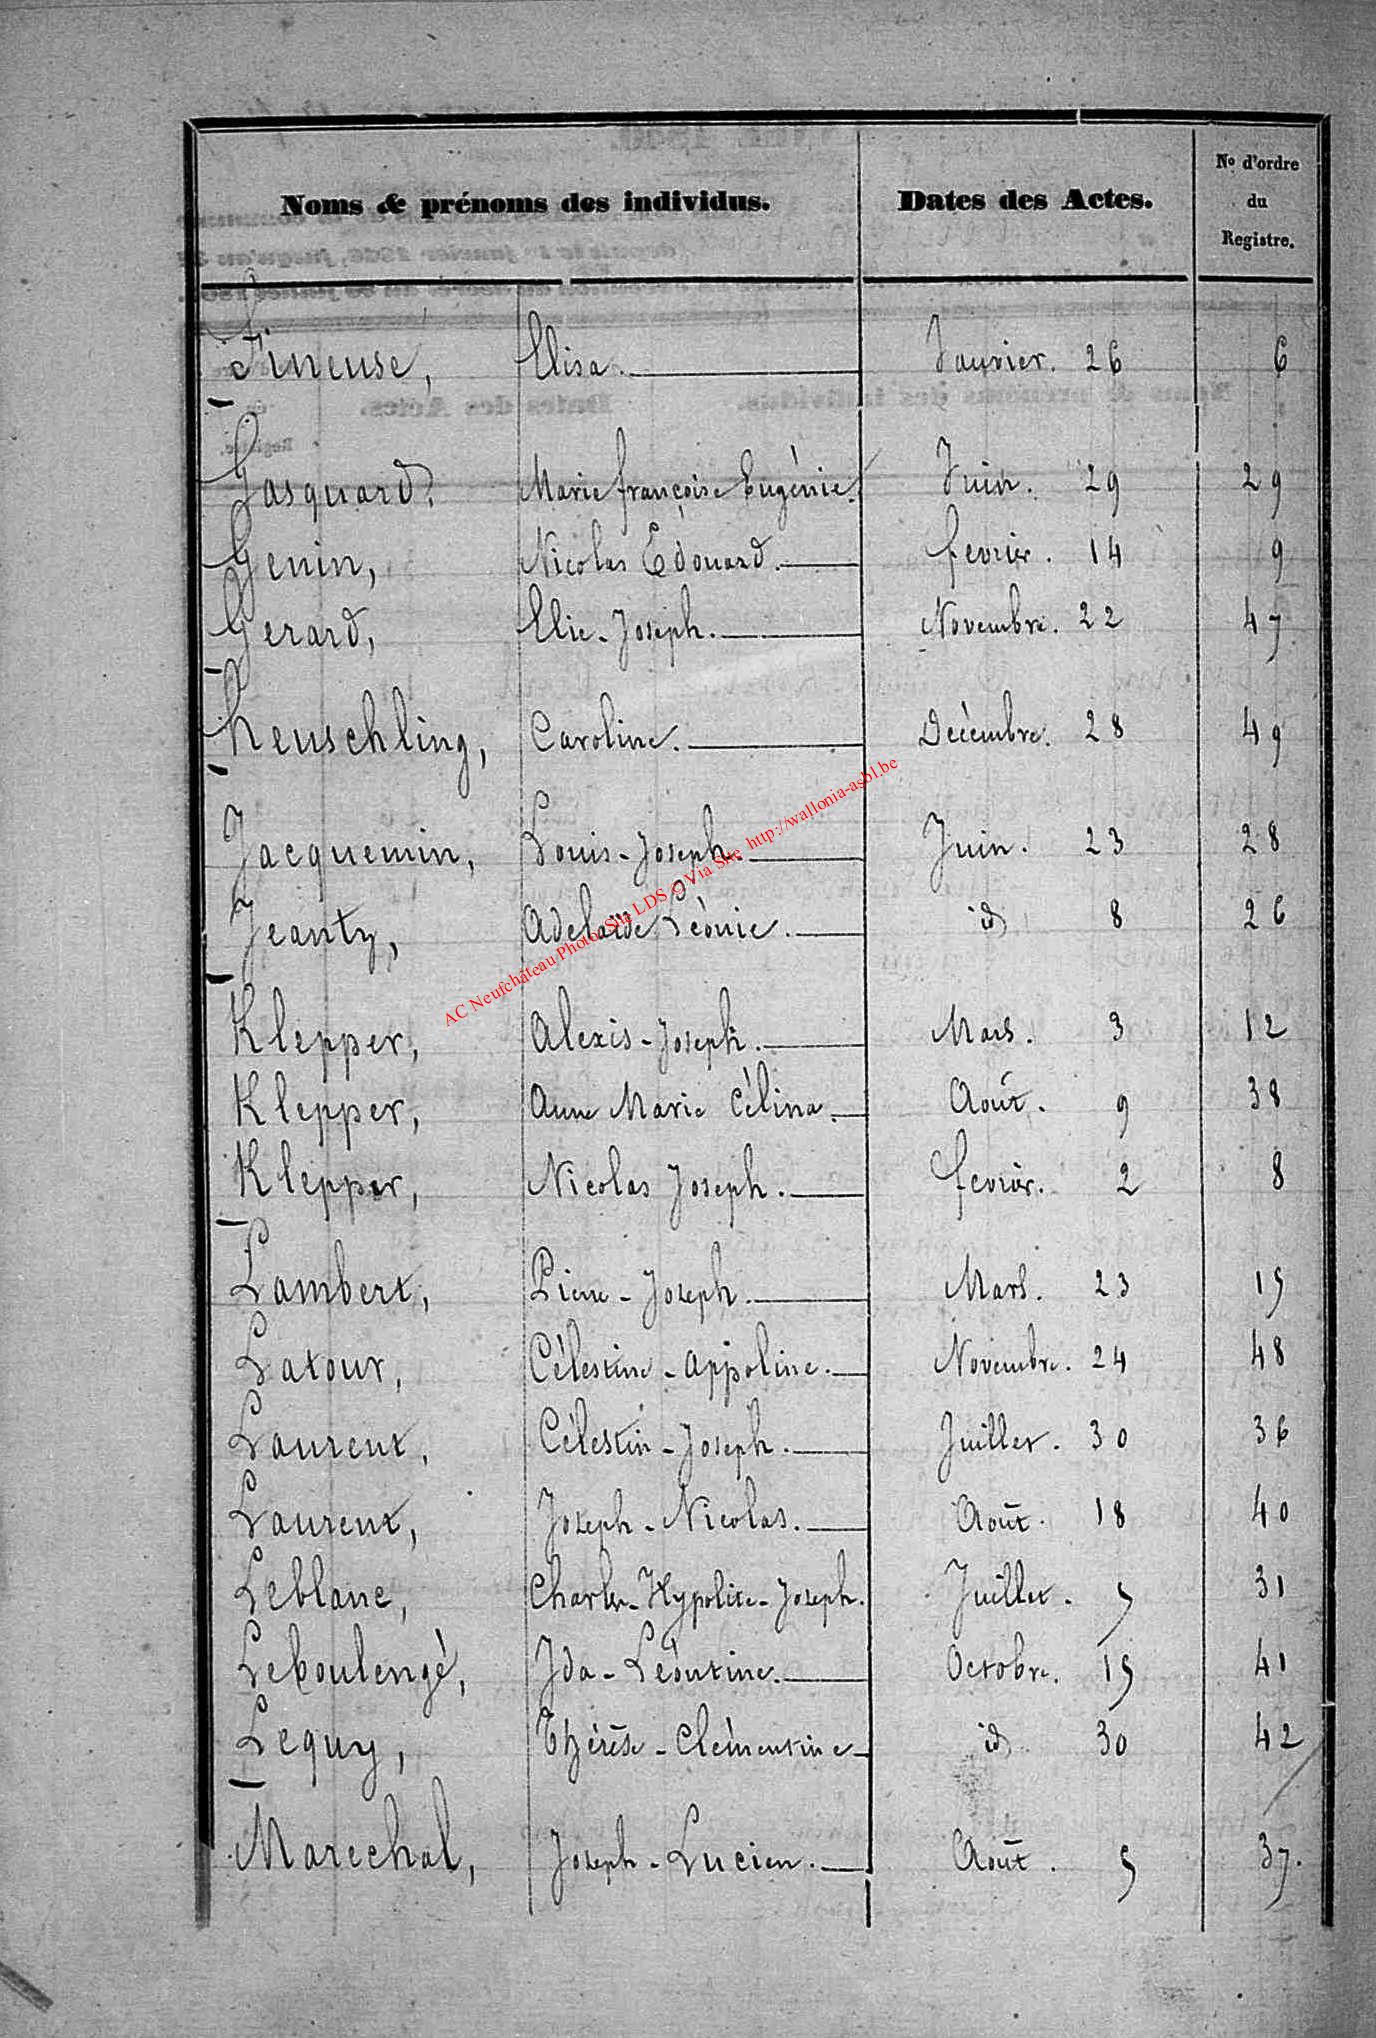 Noms & prénoms des individus. Dates des Actes. No d'ordre du Registre.
Fineuse, Elisa. Janvier. 26 6
Gasquard, Marie françoise Eugénie. Juin. 29 29
Genin, Nicolas Edouard. fevrier. 14 9
Gerard, Elie-Joseph. Novembre. 22 47
Heuschling, Caroline. Décembre. 28 49
Jacquemin, Louis-Joseph. Juin. 23 28
Jeanty, Adelaïde Léonie. id 8 26
Klepper, Alexis-Joseph. Mars. 3 12
Klepper, Anne Marie Célina. Août. 9 38
Klepper, Nicolas Joseph. fevrier. 2 8
Lambert, Pierre-Joseph. Mars. 23 15
Latour, Célestine-Appoline. Novembre. 24 48
Laurent, Célestin-Joseph. Juillet. 30 36
Laurent, Joseph-Nicolas. Août. 18 40
Leblanc, Charles-Hypolite-Joseph. Juillet. 5 31
Leboulengé, Ida-Léontine. Octobre. 15 41
Lequy, Thérèse-Clémentine id 30 42
Marechal, Joseph-Lucien. Août. 5 37.
AC Neufchâteau Photo Site LDS © Via Site http://wallonia-asbl.be